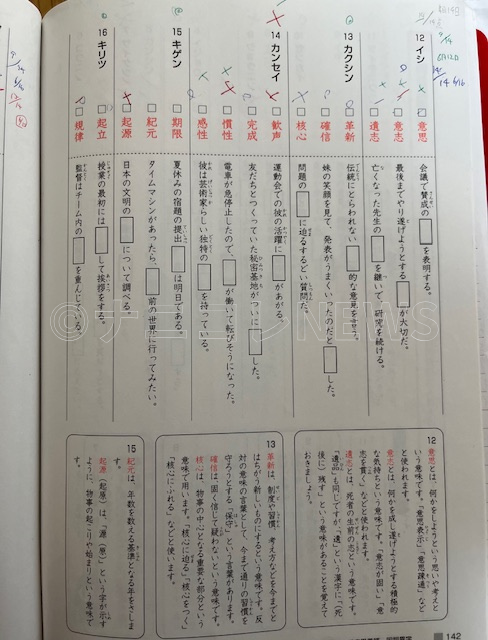 12 イシ
意思 会議で賛成の□を表明する。
意志 最後までやり遂げようとする□が大切だ。
遺志 亡くなった先生の□を継いで、研究を続ける。
13 カクシン
革新 伝統にとらわれない□的な意見を言う。
確信 妹の笑顔を見て、発表がうまくいったのだと□した。
核心 問題の□に迫るするどい質問だ。
14 カンセイ
歓声 運動会での彼の活躍に□があがる。
完成 友だちとつくっていた秘密基地がついに□した。
慣性 電車が急停止したので、□が働いて転びそうになった。
感性 彼は芸術家らしい独特の□を持っている。
15 キゲン
期限 夏休みの宿題の提出□は明日である。
紀元 タイムマシンがあったら、□前の世界に行ってみたい。
起源 日本の文明の□について調べる。
16 キリツ
起立 授業の最初には□して挨拶をする。
規律 監督はチーム内の□を重んじている。
12
意思とは、何かをしようという思いや考えと
いう意味です。「意思表示」「意思疎通」など
と使われます。
意志とは、何かを成し遂げようとする積極的
な気持ちという意味です。「意志が固い」「意
志を貫く」などと使われます。
遺志とは、死者の生前の志という意味です。
「遺品」も同じですが、「遺」という漢字に「（死
後に）残す」という意味があることを覚えて
おきましょう。
13
革新は、制度や習慣、考え方などを今までと
はちがう新しいものにするという意味です。反
対の意味の言葉として、今まで通りの習慣を
守ろうとする「保守」という言葉があります。
確信は固く信じて疑わないという意味です。
核心は、物事の中心となる重要な部分という
意味で用います。「核心に迫る」「核心をつく」
「核心にふれる」などと使います。
15
紀元は、年数を数える基準となる年をさしま
す。
起源（起原）は、「源（原）」という字が示す
ように、物事の起こりや始まりという意味で
す。
142